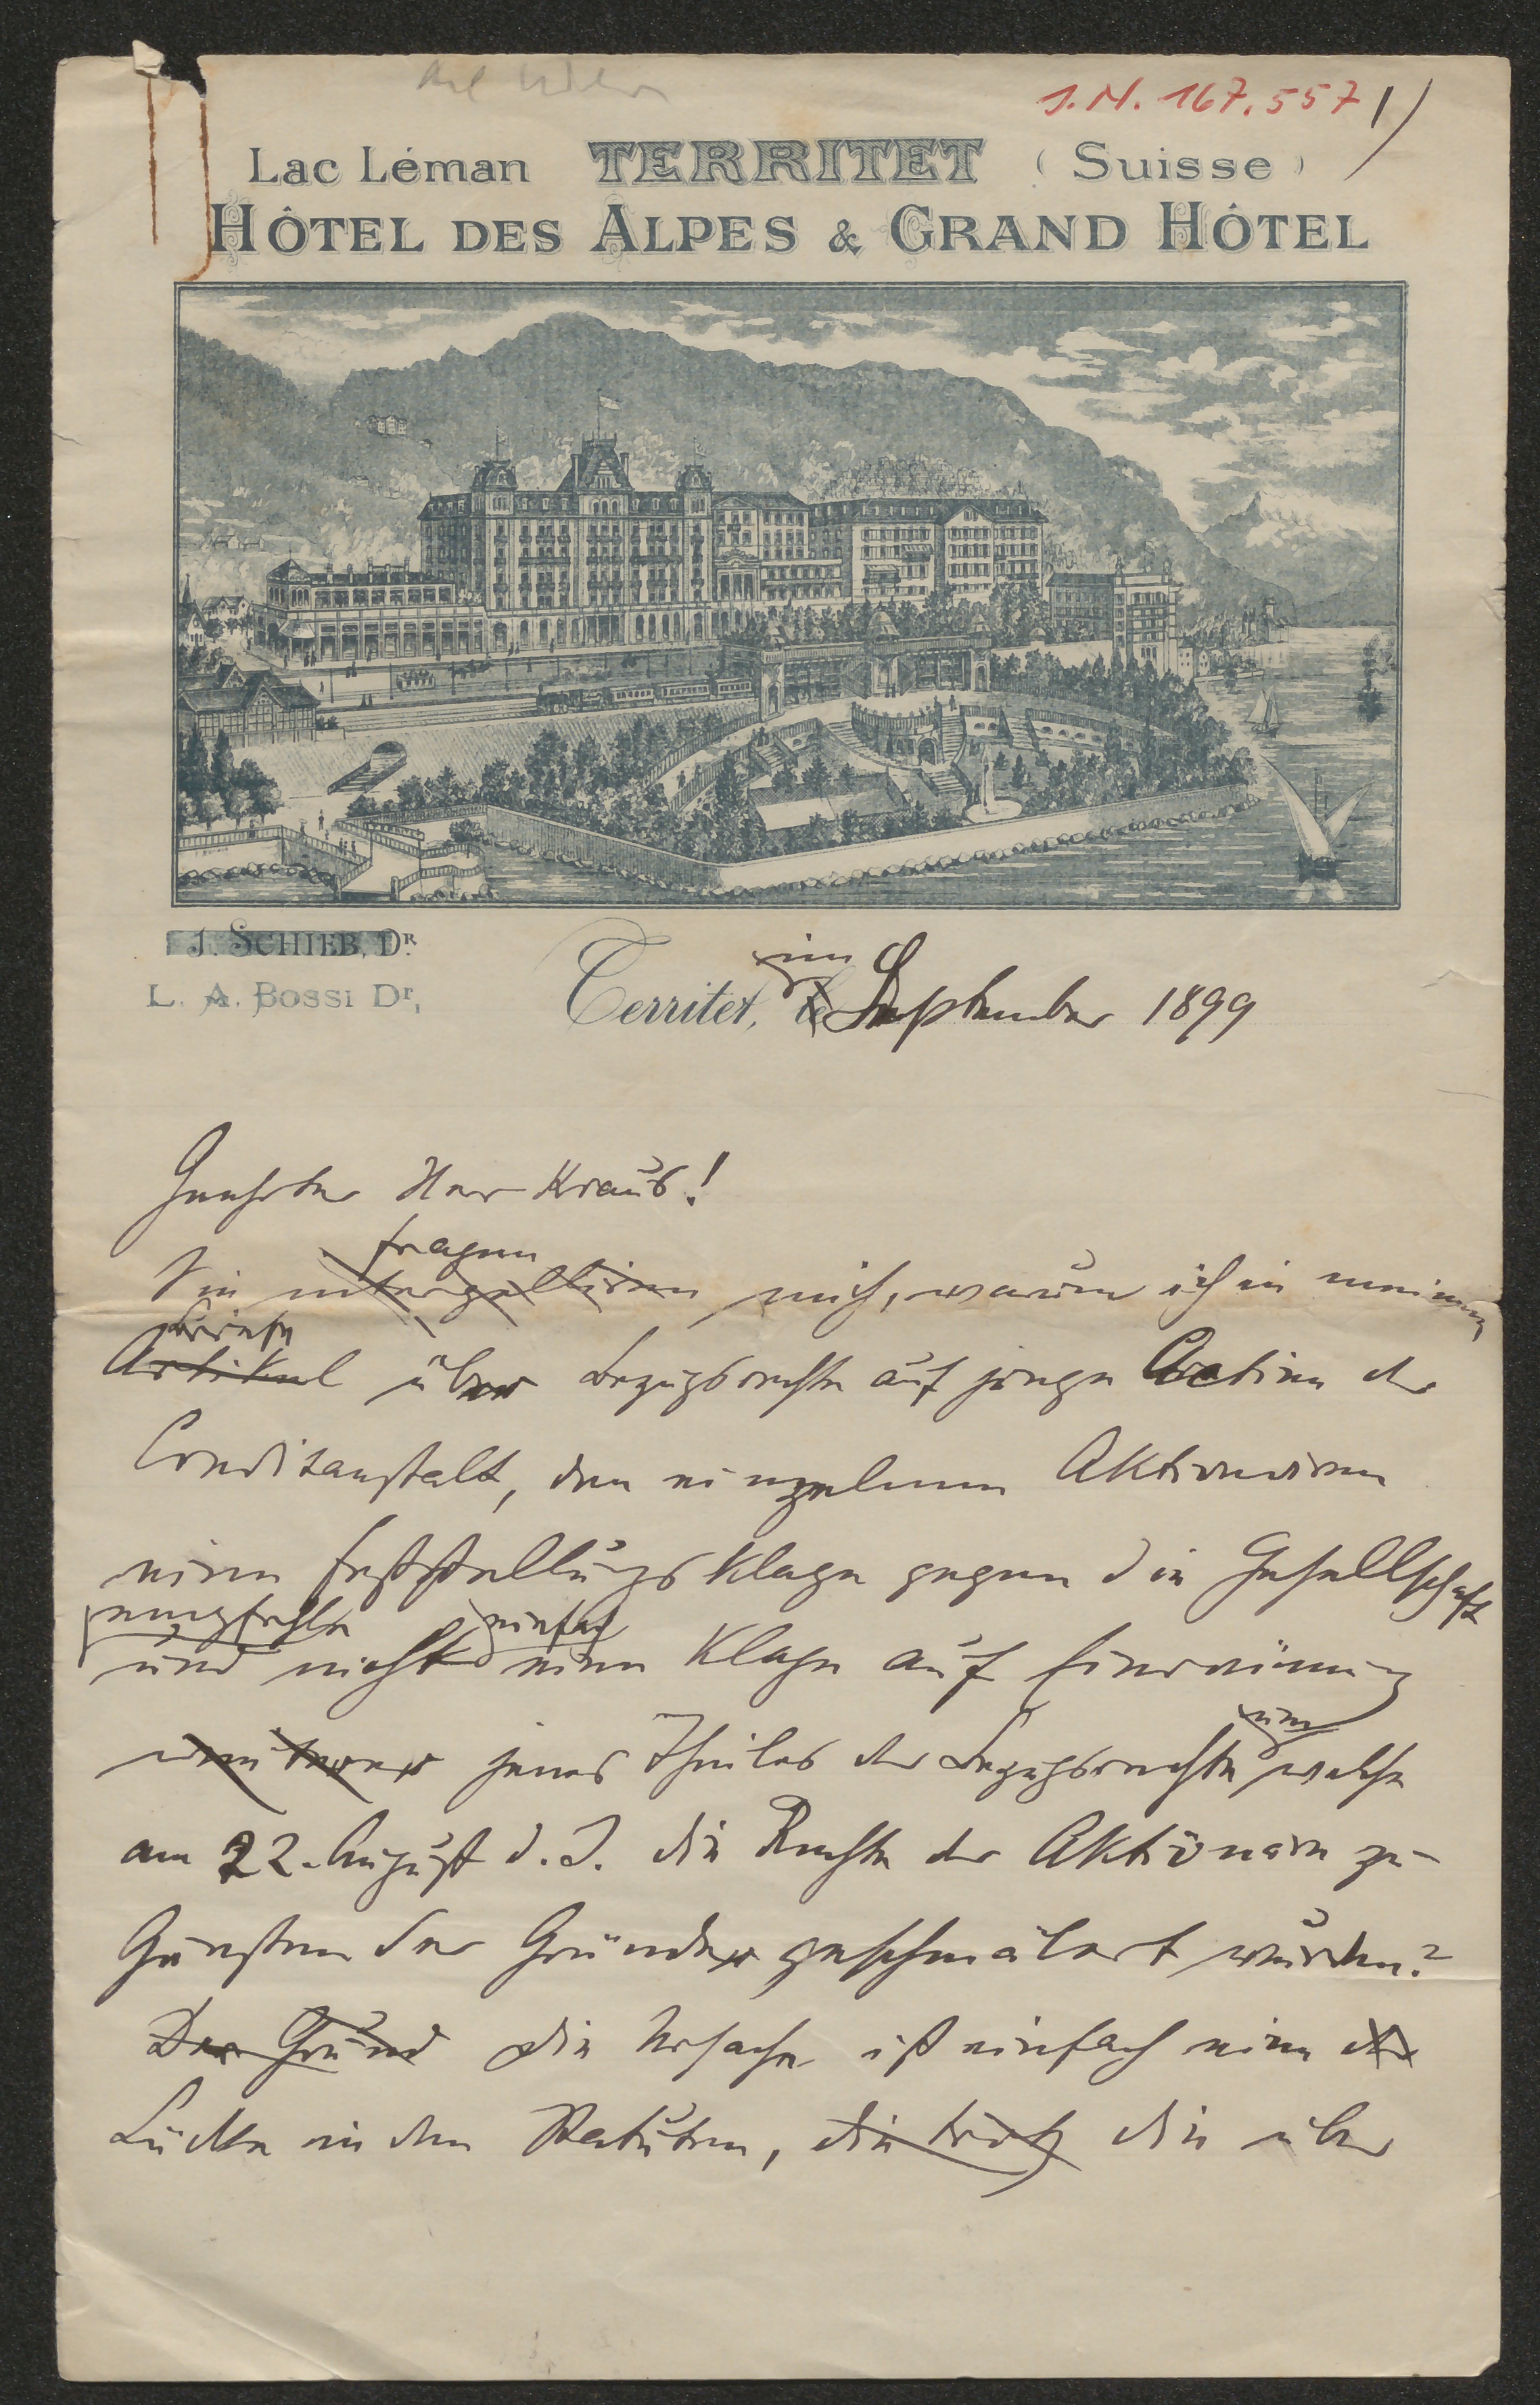 J. N. 167.557 1/
Lac Léman TERRITET (Suisse)
HÔTEL DES ALPES & GRAND HÔTEL
J. SCHIEB, DR.
L. A. BOSSI Dr,
im
Territet, le September 1899
Geehrter Herr Kraus!
fragen
Sie interpelliren mich, warum ich in meinem
Briefe
Artikel über Bezugsrechte auf junge Actien der
Creditanstalt, den einzelnen Aktionären
eine Feststellungsklage gegen die Gesellschaft
empfehle einfach
und nicht eine Klage auf Einräumung
weiterer jenes Theiles der Bezugsrechte um welche
am 22. August d. J. die Rechte der Aktionäre zu-
Gunsten der Gründer geschmälert wurden?
Der Grund die Ursache ist einfach eine der
Lücke in den Statuten, die trotz die über